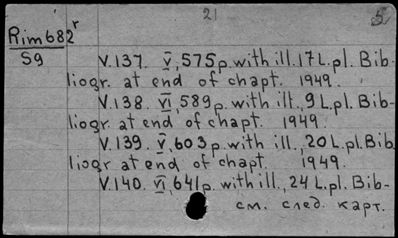 21 5
Rim682r
Sg
V.137. V,575p. with ill. 17 L.pl. Bib-
liogr. at end of chapt. 1949.
V.138. VI,589p. with ill., 9 L. pl. Bib-
liogr. at end of chapt. 1949.
V.139. V,603p with ill., 20 L.pl. Bib
liogr at end of chapt. 1949.
V.140. VI,641p. with ill., 24 L.pl. Bib-
см. след. карт.